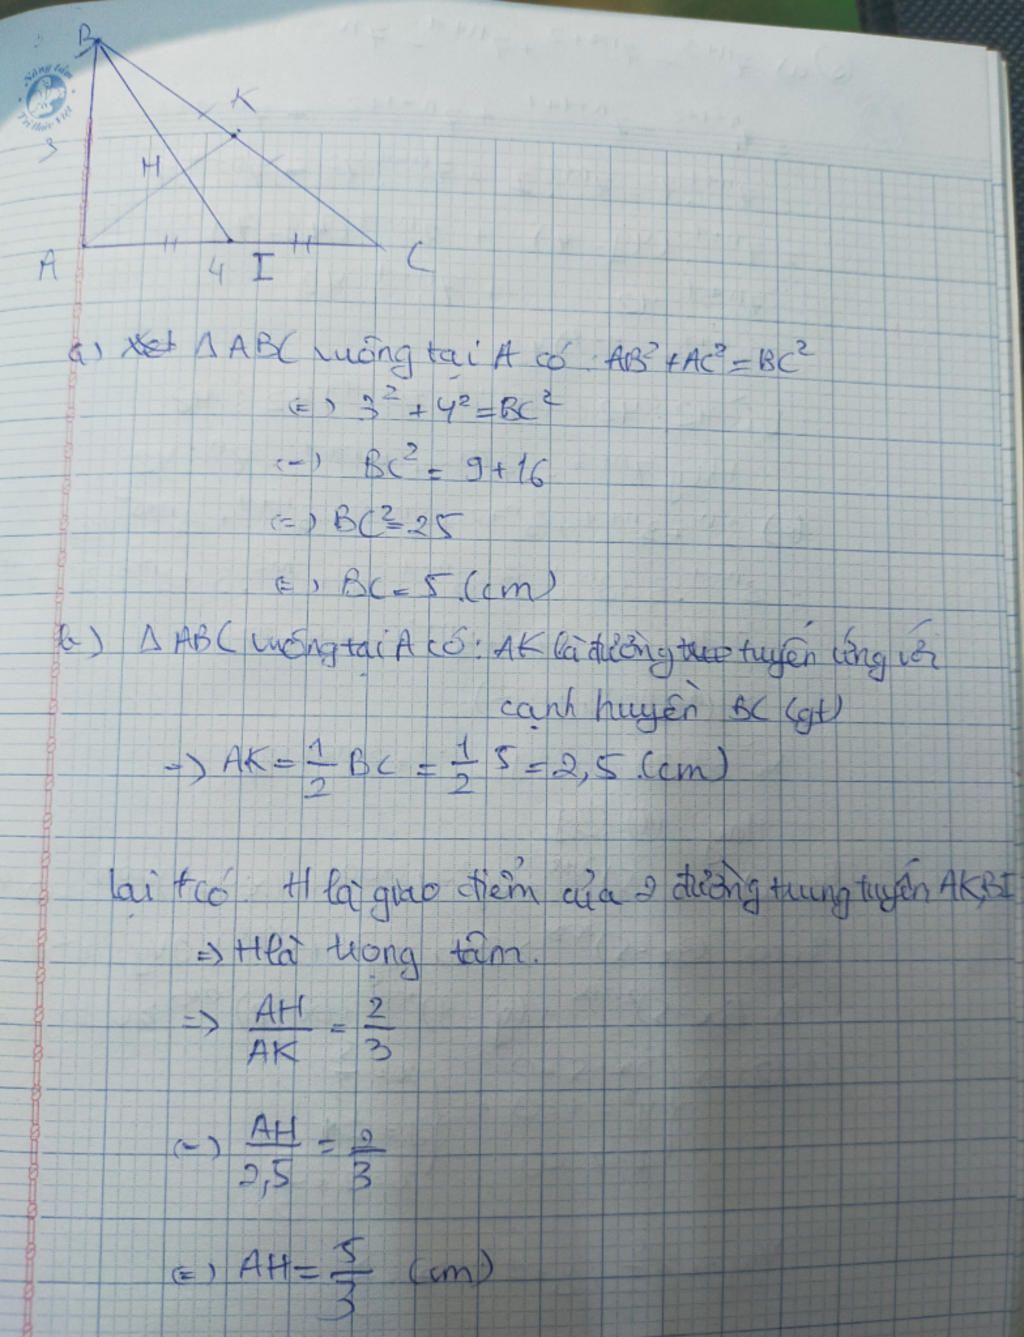 B
Nâng tầm
Tri thức Việt
K
3
H
A
4
I
C
a) Xét Δ ABC vuông tại A có: AB² + AC² = BC²
(=) 3² + 4² = BC²
(=) BC² = 9 + 16
(=) BC² = 25
(=) BC = 5 (cm)
b) Δ ABC vuông tại A có: AK là đường tuyến ứng với
cạnh huyền BC (gt)
=> AK = 1/2 BC = 1/2 5 = 2,5 (cm)
lại t có H là giao điểm của 2 đường trung tuyến AK, BI
=> H là trọng tâm.
=> AH/AK = 2/3
(=) AH/2,5 = 2/3
(=) AH = 5/3 (cm)